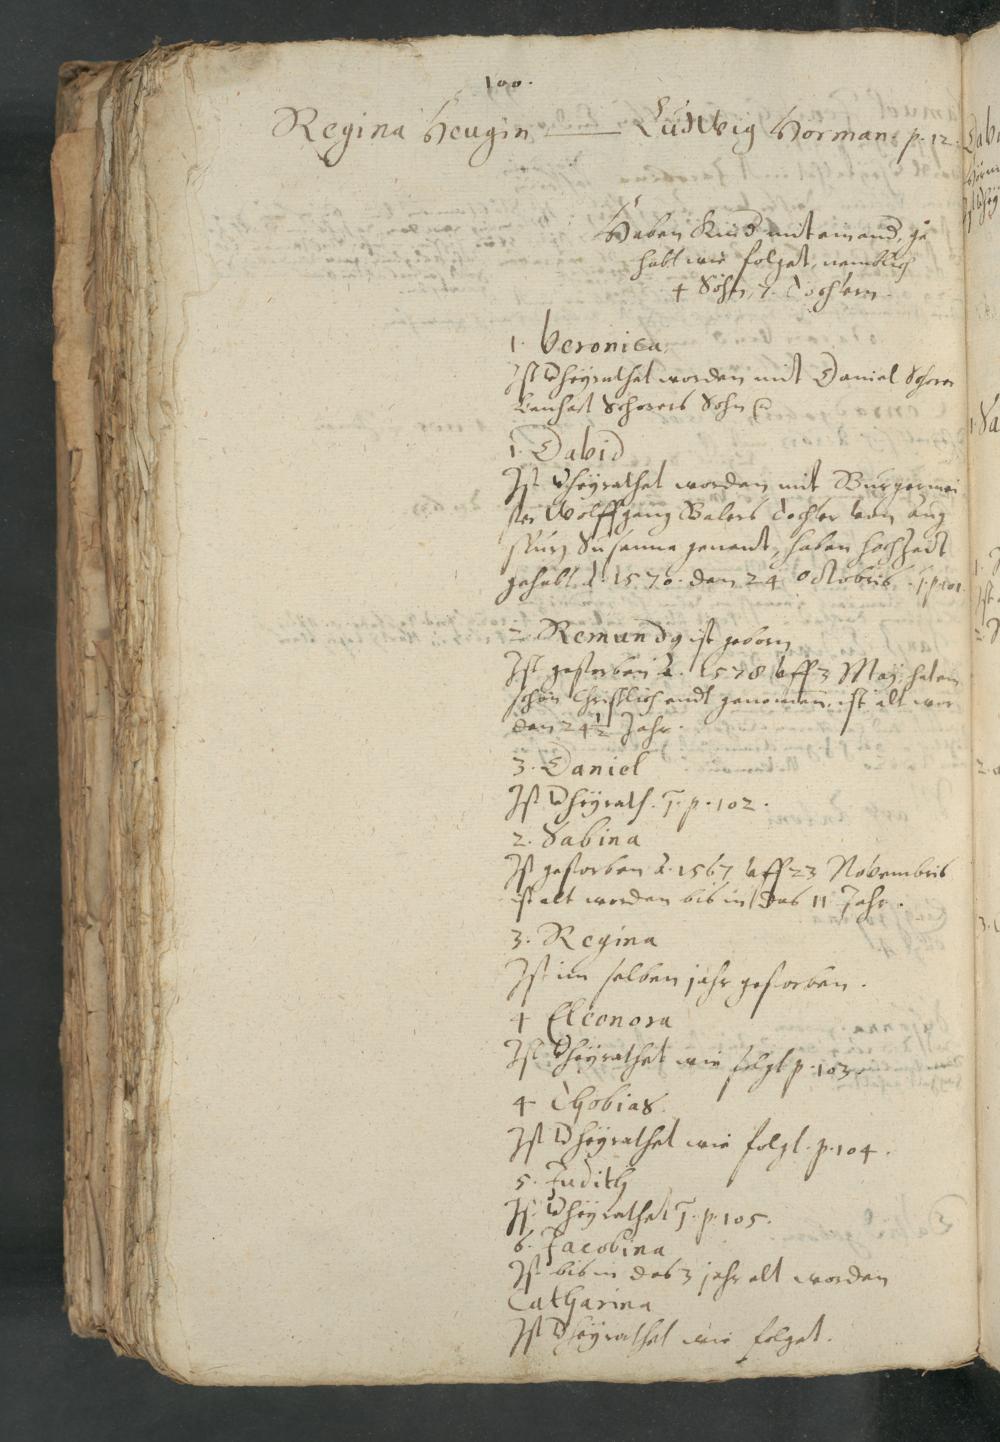 100.
Regina Heugin — Ludwig Horman. p. 12.
Haben Kind mit einand. ge
habt wie folget, nemblich
4 Söhn, 7. Töchtern.
1. Veronica.
Ist vheyrathet worden mit Daniel Schorer
Lenhart Schorers Sohn
1. David
Ist vheyrathet worden mit Burgermei
ster Wolffgang Walers Tochter von Aug
spurg Susanna genant, haben hochzeit
gehalt A. 1570. den 24 Octobris. f. p. 101
2. Remundg ist geborn
Ist gestorben A. 1578 vff 3 Maij. hat ein
schön Christlich endt genomen, ist alt wor
den 24 1/2 Jahr.
3. Daniel
Ist vheyrath. f. p. 102.
2. Sabina
Ist gestorben A. 1567 vff 23 Novembris
ist alt worden bis in das 11 Jahr.
3. Regina
Ist im selben jahr gestorben.
4 Eleonora
Ist vheyrathet wie folgt p. 103.
4 Thobias
Ist vheyrathet wie folgt. p. 104.
5. Judith
Ist vheyrathet f. p. 105.
6. Jacobina
Ist bis in das 3 jahr alt worden
Catharina
Ist vheyrathet wie folget.